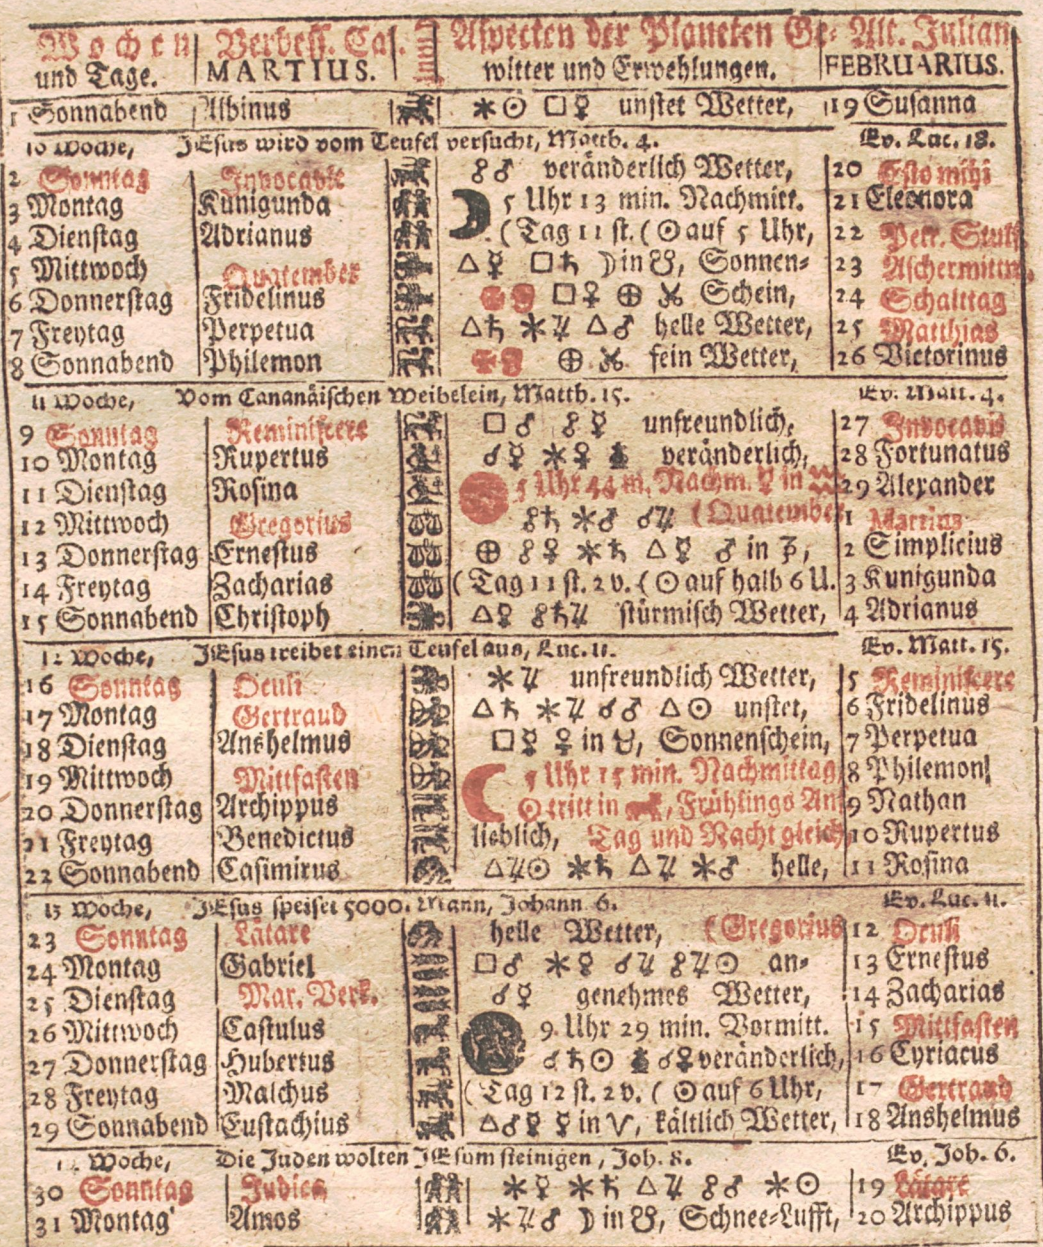 Wochen Verbess. Cal. Aspecten der Planeten Ge- Alt. Julian
und Tage. MARTIUS. witter und Erwehlungen. FEBRUARIUS.
1 Sonnabend Albinus ⚹☉ □☿ unstet Wetter, 19 Susanna
10 Woche, JEsus wird vom Teufel versucht, Matth. 4. Ev. Luc. 18.
2 Sonntag Invocavit ☍♂ veränderlich Wetter, 20 Esto mihi
3 Montag Kunigunda 5 Uhr 13 min. Nachmitt. 21 Eleonora
4 Dienstag Adrianus (Tag 11 st. (☉ auf 5 Uhr, 22 Petr. Stulf
5 Mittwoch Quatember △☿ □♄ ☽ in ☋, Sonnen- 23 Aschermittw.
6 Donnerstag Fridelinus □♀ ⊕ Schein, 24 Schalttag
7 Freytag Perpetua △♄ ⚹♃ △♂ helle Wetter, 25 Matthias
8 Sonnabend Philemon ⊕ fein Wetter, 26 Victorinus
11 Woche, Vom Cananäischen Weibelein, Matth. 15. Ev. Matt. 4.
9 Sonntag Reminiscere □♂ ☍☿ unfreundlich, 27 Invocavit
10 Montag Rupertus ☌☿ ⚹♀ veränderlich, 28 Fortunatus
11 Dienstag Rosina 5 Uhr 44 m. Nachm. ☿ in ♒ 29 Alexander
12 Mittwoch Gregorius ☍♄ ⚹♂ ☌♃ (Quatember 1 Martius
13 Donnerstag Ernestus ⊕ ☍♀ ⚹♄ △☿ ♂ in ♑, 2 Simplicius
14 Freytag Zacharias (Tag 11 st. 2 v. (☉ auf halb 6 U. 3 Kunigunda
15 Sonnabend Christoph △♀ ☍♄♃ stürmisch Wetter, 4 Adrianus
12 Woche, JEsus treibet einen Teufel aus, Luc. 11. Ev. Matt. 15.
16 Sonntag Oculi ⚹♃ unfreundlich Wetter, 5 Reminiscere
17 Montag Gertraud △♄ ⚹♃ ☌♂ △☉ unstet, 6 Fridelinus
18 Dienstag Anshelmus □☿ ♀ in ♉, Sonnenschein, 7 Perpetua
19 Mittwoch Mittfasten 5 Uhr 15 min. Nachmittag 8 Philemon
20 Donnerstag Archippus ☉ tritt in, Frühlings An 9 Nathan
21 Freytag Benedictus lieblich, Tag und Nacht gleich 10 Rupertus
22 Sonnabend Casimirus △♃☉ ⚹♄ △♃ ⚹♂ helle, 11 Rosina
13 Woche, JEsus speiset 5000. Mann, Johann. 6. Ev. Luc. 11.
23 Sonntag Lätare helle Wetter, (Gregorius 12 Oculi
24 Montag Gabriel □♂ ⚹♀ ☌♃ ☍♃☉ an- 13 Ernestus
25 Dienstag Mar. Verk. ☌☿ genehmes Wetter, 14 Zacharias
26 Mittwoch Castulus 9 Uhr 29 min. Vormitt. 15 Mittfasten
27 Donnerstag Hubertus ☌♄☉ ☌♀ veränderlich, 16 Cyriacus
28 Freytag Malchus (Tag 12 st. 2 v. (☉ auf 6 Uhr, 17 Gertraud
29 Sonnabend Eustachius △♂☿ ☿ in ♈, kältlich Wetter, 18 Anshelmus
14 Woche, Die Juden wolten JEsum steinigen, Joh. 8. Ev. Joh. 6.
30 Sonntag Judica ⚹☿ ⚹♄ △♃ ☍♂ ⚹☉ 19 Lätare
31 Montag Amos ⚹♃♂ ☽ in ☋, Schnee-Lufft, 20 Archippus